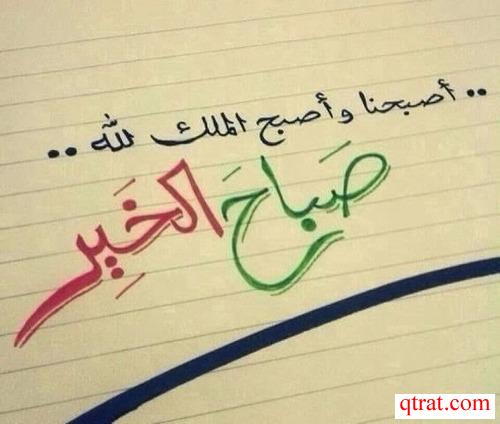 .. أصبحنا وأصبح الملك لله ..
صَباحَ الخَيرِ
qtrat.com